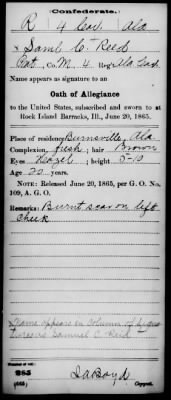 Confederate.
R 4 Cav. Ala
x Saml C. Reed
Pvt, Co. M, 4 Reg't Ala. Cav.
Name appears as signature to an
Oath of Allegiance
to the United States, subscribed and sworn to at
Rock Island Barracks, Ill., June 20, 1865.
Place of residence Burnsville, Ala.
Complexion, fresh; hair Brown
Eyes Hazel; height 5-10
Age 20 years.
NOTE: Released June 20, 1865, per G. O. No.
109, A. G. O.
Remarks: Burnt scar on left
cheek
x Name appears in column of
as Samuel C. Reid
Number of roll:
285
(665)
J. A. Boyd
Copyist.